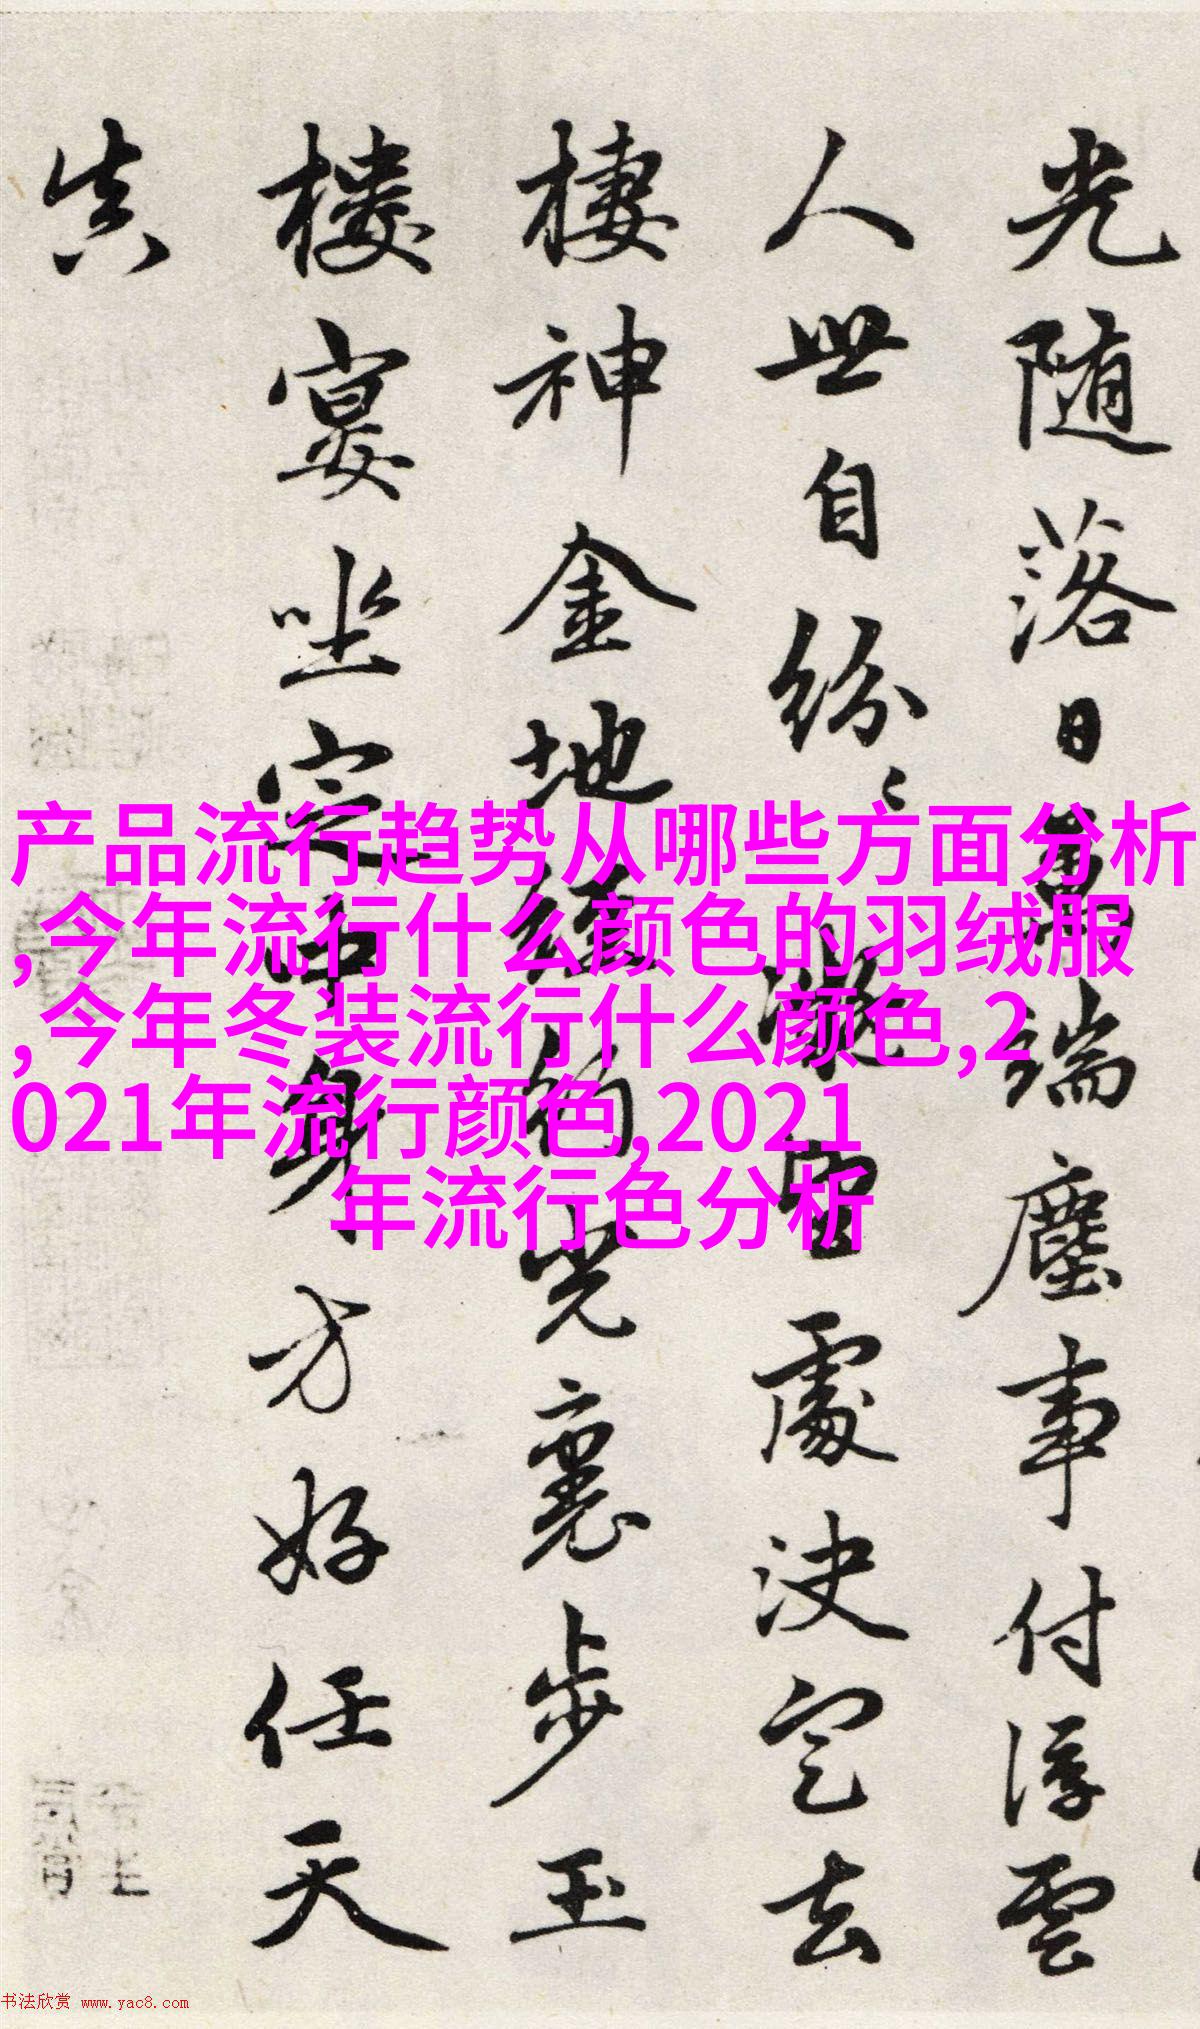 光随落日萬端塵事付浮雲
人世自紛〻凝望處決定去
棲神金地約光裏步玉
樓宴坐定中身方好任天
真
产品流行趋势从哪些方面分析
,今年流行什么颜色的羽绒服
,今年冬装流行什么颜色,2
021年流行颜色,2021
年流行色分析
书法欣赏 www.yac8.com